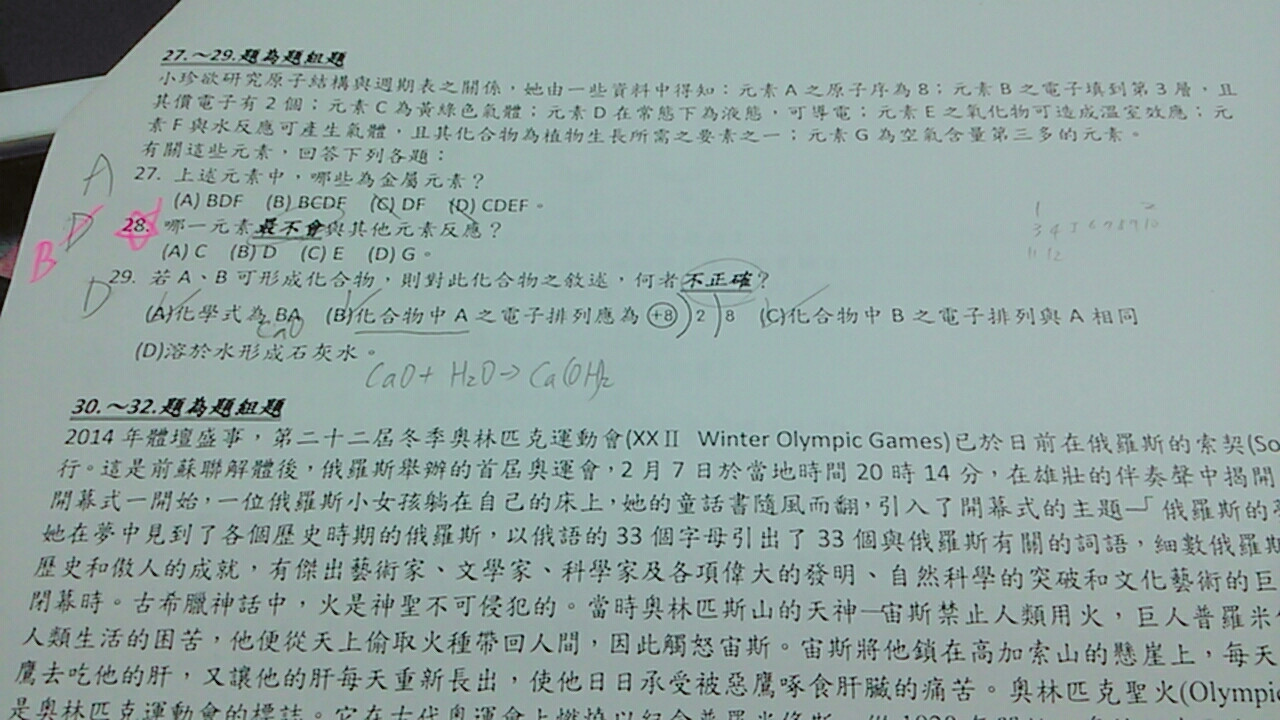 27.～29.題為題組題
小珍欲研究原子結構與週期表之關係，她由一些資料中得知：元素 A 之原子序為 8；元素 B 之電子填到第 3 層，且
其價電子有 2 個；元素 C 為黃綠色氣體；元素 D 在常態下為液態，可導電；元素 E 之氧化物可造成溫室效應；元
素 F 與水反應可產生氣體，且其化合物為植物生長所需之要素之一；元素 G 為空氣含量第三多的元素。
有關這些元素，回答下列各題：
A 27. 上述元素中，哪些為金屬元素？
(A) BDF (B) BCDF (C) DF (D) CDEF。
D B 28. 哪一元素最不會與其他元素反應？
(A) C (B) D (C) E (D) G。
D 29. 若 A、B 可形成化合物，則對此化合物之敘述，何者不正確？
(A)化學式為 BA (B)化合物中 A 之電子排列應為 +8 2 8 (C)化合物中 B 之電子排列與 A 相同
CaO
(D)溶於水形成石灰水。
CaO + H2O → Ca(OH)2
1 2
3 4 5 6 7 8 9 10
11 12
30.～32.題為題組題
2014 年體壇盛事，第二十二屆冬季奧林匹克運動會(XXⅡ Winter Olympic Games)已於日前在俄羅斯的索契(So
行。這是前蘇聯解體後，俄羅斯舉辦的首屆奧運會，2 月 7 日於當地時間 20 時 14 分，在雄壯的伴奏聲中揭開
開幕式一開始，一位俄羅斯小女孩躺在自己的床上，她的童話書隨風而翻，引入了開幕式的主題—「俄羅斯的
她在夢中見到了各個歷史時期的俄羅斯，以俄語的 33 個字母引出了 33 個與俄羅斯有關的詞語，細數俄羅斯
歷史和傲人的成就，有傑出藝術家、文學家、科學家及各項偉大的發明、自然科學的突破和文化藝術的巨
閉幕時。古希臘神話中，火是神聖不可侵犯的。當時奧林匹斯山的天神—宙斯禁止人類用火，巨人普羅米
人類生活的困苦，他便從天上偷取火種帶回人間，因此觸怒宙斯。宙斯將他鎖在高加索山的懸崖上，每天
鷹去吃他的肝，又讓他的肝每天重新長出，使他日日承受被惡鷹啄食肝臟的痛苦。奧林匹克聖火(Olympic
是奧林匹克運動會的標誌。它在古代奧運會上燃燒以紀念普羅米修斯